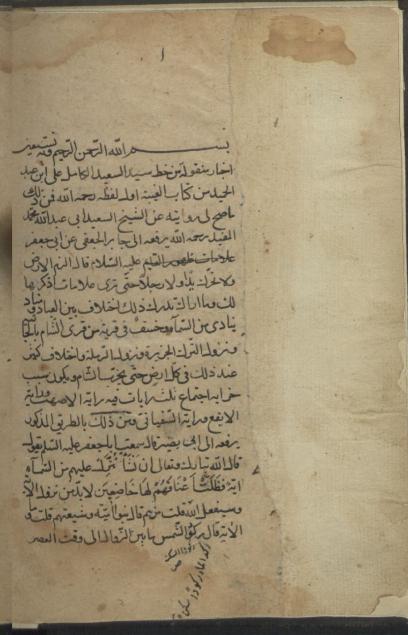 ١
بسم الله الرحمن الرحيم وبه نستعين
اخبار منقولة من خط سيد السعيد الكامل على ابن عبد
الحميد من كتاب الغيبة اوله لفظه رحمه الله فمن ذلك
ما صح لى روايته عن الشيخ السعيد ابى عبد الله محمد
المفيد رحمه الله يرفعه الى جابر الجعفى عن ابى جعفر
عليه السلام قال الزم الارض
ولا تحرك يدا ولا رجلا حتى ترى علامات اذكرها
لك وما اراك تدرك ذلك اختلاف بين العباد ومناد
ينادى من السماء وخسف فى قرية من قرى الشام بالجا
ونزول الترك الجزيرة ونزول الرملة واختلاف كثير
عند ذلك فى كل ارض حتى يخرب الشام ويكون سبب
خرابه اجتماع ثلث رايات فيه راية الاصهب وراية
الابقع وراية السفيانى ومن ذلك بالطريق المذكور
يرفعه الى ابى بصير قال سمعت ابا جعفر عليه السلام يقول
قال الله تبارك وتعالى ان نشأ ننزل عليهم من السماء
اية فظلت اعناقهم لها خاضعين
وسيفعل الله قلت من هم قال بنو امية وشيعتهم قلت وما
الاية قال ركود الشمس ما بين الزوال الى وقت العصر